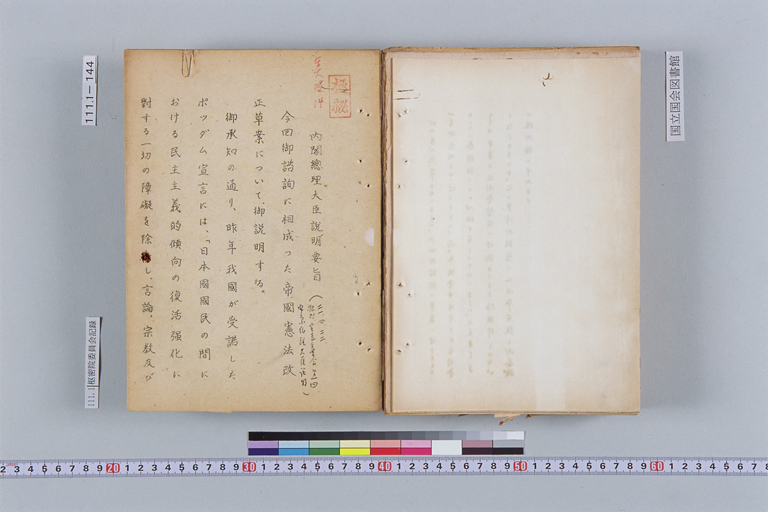 極秘
内閣總理大臣説明要旨
今回御諮詢に相成つた帝國憲法改
正草案について、御説明する。
御承知の通り、昨年我國が受諾した
ポツダム宣言には、「日本國國民の間に
おける民主主義的傾向の復活强化に
對する一切の障礙を除し、言論、宗教及び
111.1-144
111.1 枢密院委員会記録
国立国会図書館
2 3 4 5 6 7 8 9 20 1 2 3 4 5 6 7 8 9 30 1 2 3 4 5 6 7 8 9 40 1 2 3 4 5 6 7 8 9 50 1 2 3 4 5 6 7 8 9 60 1 2 3 4 5 6 7